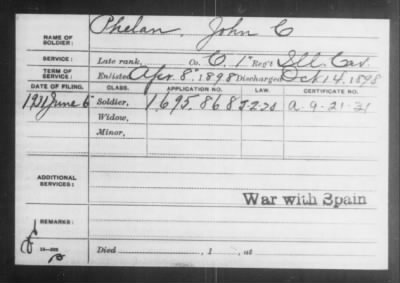 NAME OF SOLDIER: Phelan, John C
SERVICE: Late rank, Co. C, 1" Reg't Ill. Cav.
TERM OF SERVICE: Enlisted Apr. 8" 1898 Discharged Oct 14, 1898
DATE OF FILING. CLASS. APPLICATION NO. LAW. CERTIFICATE NO.
1921 June 6" Soldier, 1,695,868 A-9-21-21
Widow,
Minor,
ADDITIONAL SERVICES:
War with Spain
REMARKS:
Died , 1 , at